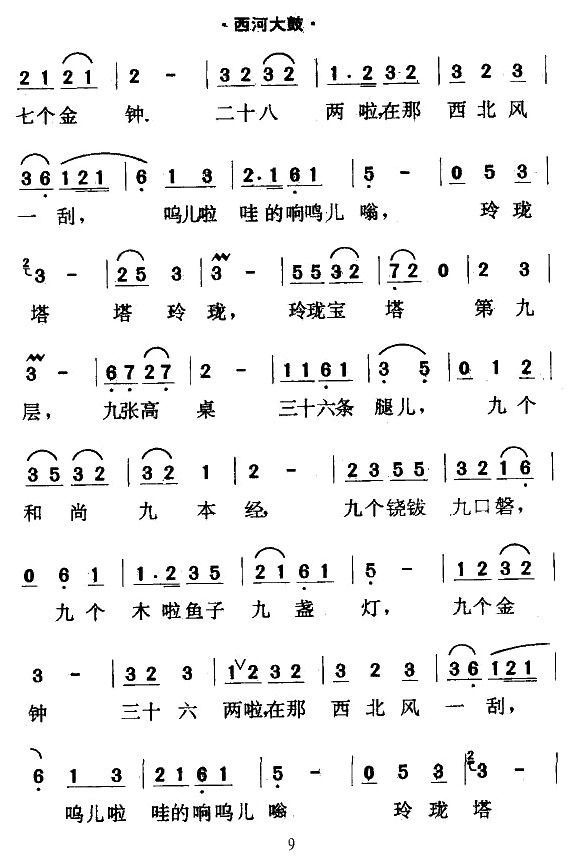 ·西河大鼓·
2 1 2 1 | 2 - | 3 2 3 2 | 1 · 2 3 2 | 3 2 3 |
七个金 钟. 二十八 两啦,在那 西北风
3 6 1 2 1 | 6 1 3 | 2 · 1 6 1 | 5 - | 0 5 3 |
一刮, 呜儿啦 哇的响鸣儿 嗡, 玲珑
2 3 - | 2 5 3 | 3 - | 5 5 3 2 | 7 2 0 | 2 3 |
塔 塔玲珑, 玲珑宝塔 第九
3 - | 6 7 2 7 | 2 - | 1 1 6 1 | 3 5 | 0 1 2 |
层, 九张高 桌 三十六条 腿儿, 九个
3 5 3 2 | 3 2 1 | 2 - | 2 3 5 5 | 3 2 1 6 |
和尚 九本 经, 九个铙钹 九口磬,
0 6 1 | 1 · 2 3 5 | 2 1 6 1 | 5 - | 1 2 3 2 |
九个 木啦鱼子 九盏 灯, 九个金
3 - | 3 2 3 | 1 V 2 3 2 | 3 2 3 | 3 6 1 2 1 |
钟 三十六 两啦,在那 西北风 一刮,
6 1 3 | 2 1 6 1 | 5 - | 0 5 3 | 2 3 - |
呜儿啦 哇的响呜儿 嗡 玲珑塔
9